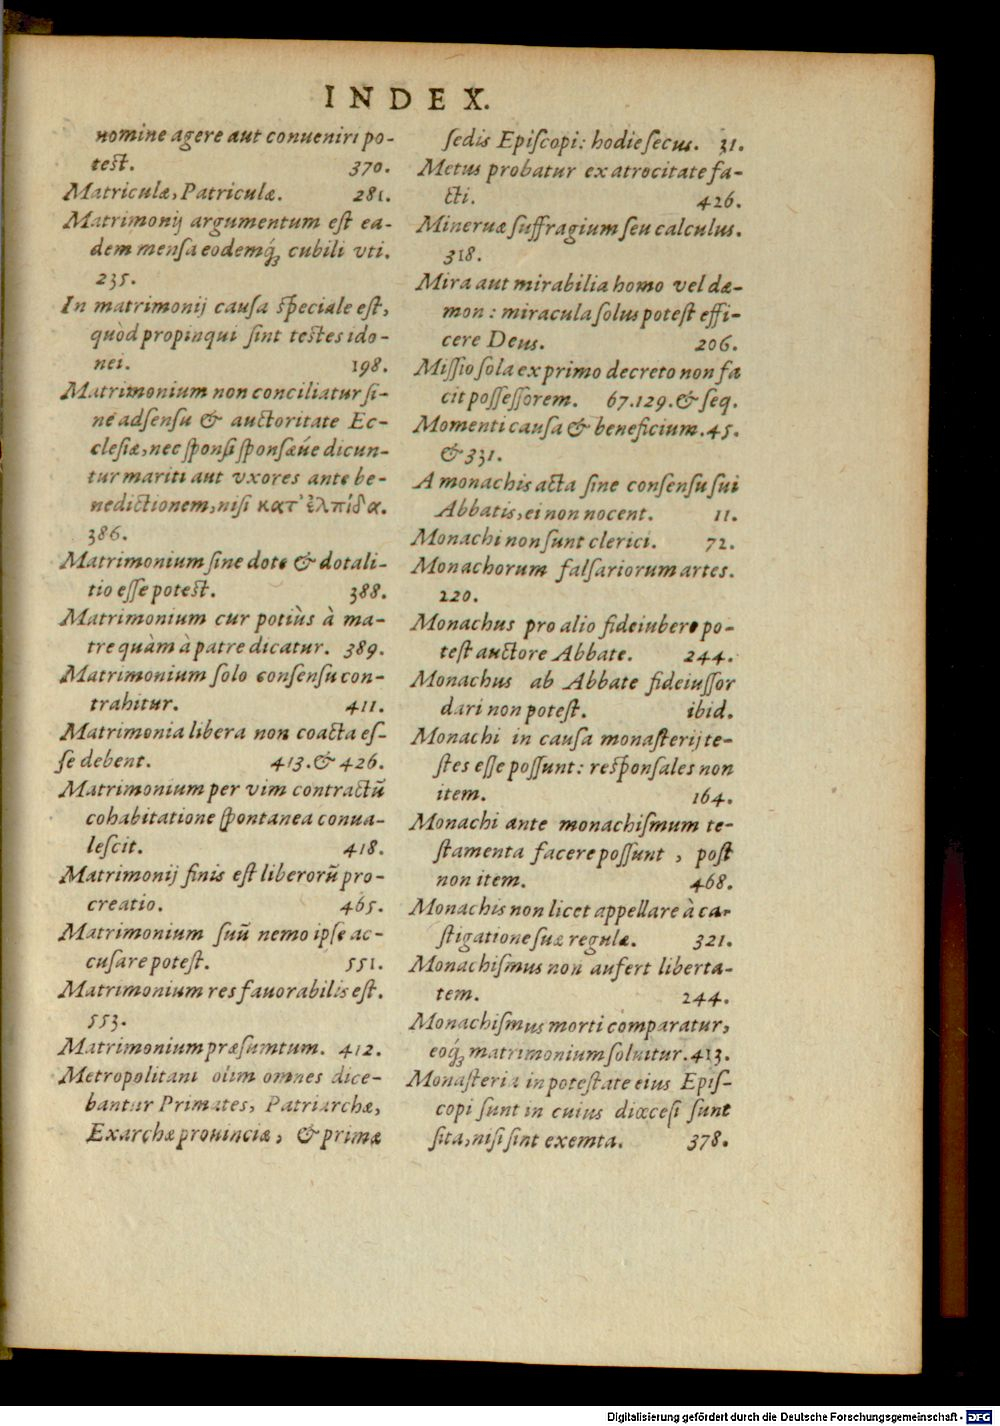 INDEX.
nomine agere aut conueniri po-
test. 370.
Matriculæ, Patriculæ. 281.
Matrimonij argumentum est ea-
dem mensa eodemq́ꝫ cubili vti.
235.
In matrimonij causa speciale est,
quòd propinqui sint testes ido-
nei. 198.
Matrimonium non conciliatur si-
ne adsensu & auctoritate Ec-
clesiæ, nec sponsi sponsæúe dicun-
tur mariti aut vxores ante be-
nedictionem, nisi κατ' ἐλπίδα.
386.
Matrimonium sine dote & dotali-
tio esse potest. 388.
Matrimonium cur potiùs à ma-
tre quàm à patre dicatur. 389.
Matrimonium solo consensu con-
trahitur. 411.
Matrimonia libera non coacta es-
se debent. 413. & 426.
Matrimonium per vim contractũ
cohabitatione spontanea conua-
lescit. 418.
Matrimonij finis est liberorũ pro-
creatio. 465.
Matrimonium suũ nemo ipse ac-
cusare potest. 551.
Matrimonium res fauorabilis est.
553.
Matrimonium præsumtum. 412.
Metropolitani olim omnes dice-
bantur Primates, Patriarchæ,
Exarchæ prouinciæ, & primæ
sedis Episcopi: hodie secus. 31.
Metus probatur ex atrocitate fa-
cti. 426.
Mineruæ suffragium seu calculus.
318.
Mira aut mirabilia homo vel dæ-
mon: miracula solus potest effi-
cere Deus. 206.
Missio sola ex primo decreto non fa
cit possessorem. 67.129. & seq.
Momenti causa & beneficium. 45.
& 331.
A monachis acta sine consensu sui
Abbatis, ei non nocent. 11.
Monachi non sunt clerici. 72.
Monachorum falsariorum artes.
220.
Monachus pro alio fideiubere po-
test auctore Abbate. 244.
Monachus ab Abbate fideiussor
dari non potest. ibid.
Monachi in causa monasterij te-
stes esse possunt: responsales non
item. 164.
Monachi ante monachismum te-
stamenta facere possunt, post
non item. 468.
Monachis non licet appellare à ca-
stigatione suæ regulæ. 321.
Monachismus non aufert liberta-
tem. 244.
Monachismus morti comparatur,
eoq́ꝫ matrimonium soluitur. 413.
Monasteria in potestate eius Epis-
copi sunt in cuius diœcesi sunt
sita, nisi sint exemta. 378.
Digitalisierung gefördert durch die Deutsche Forschungsgemeinschaft - DFG